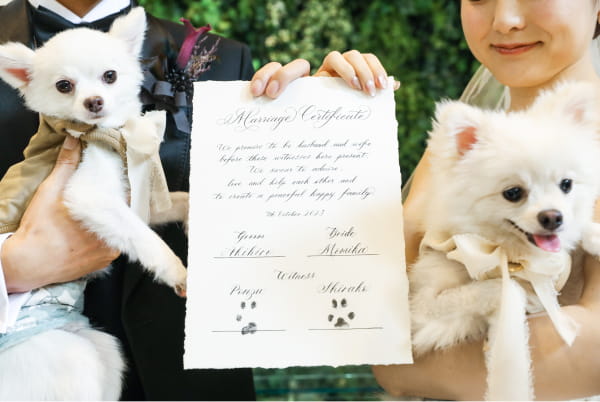 Marriage Certificate
We promise to be husband and wife
before these witnesses here present.
We swear to admire,
love and help each other and
to create a peaceful happy family.
7th October 2023
Groom Bride
Momika
Witness
Ponzu Shirako